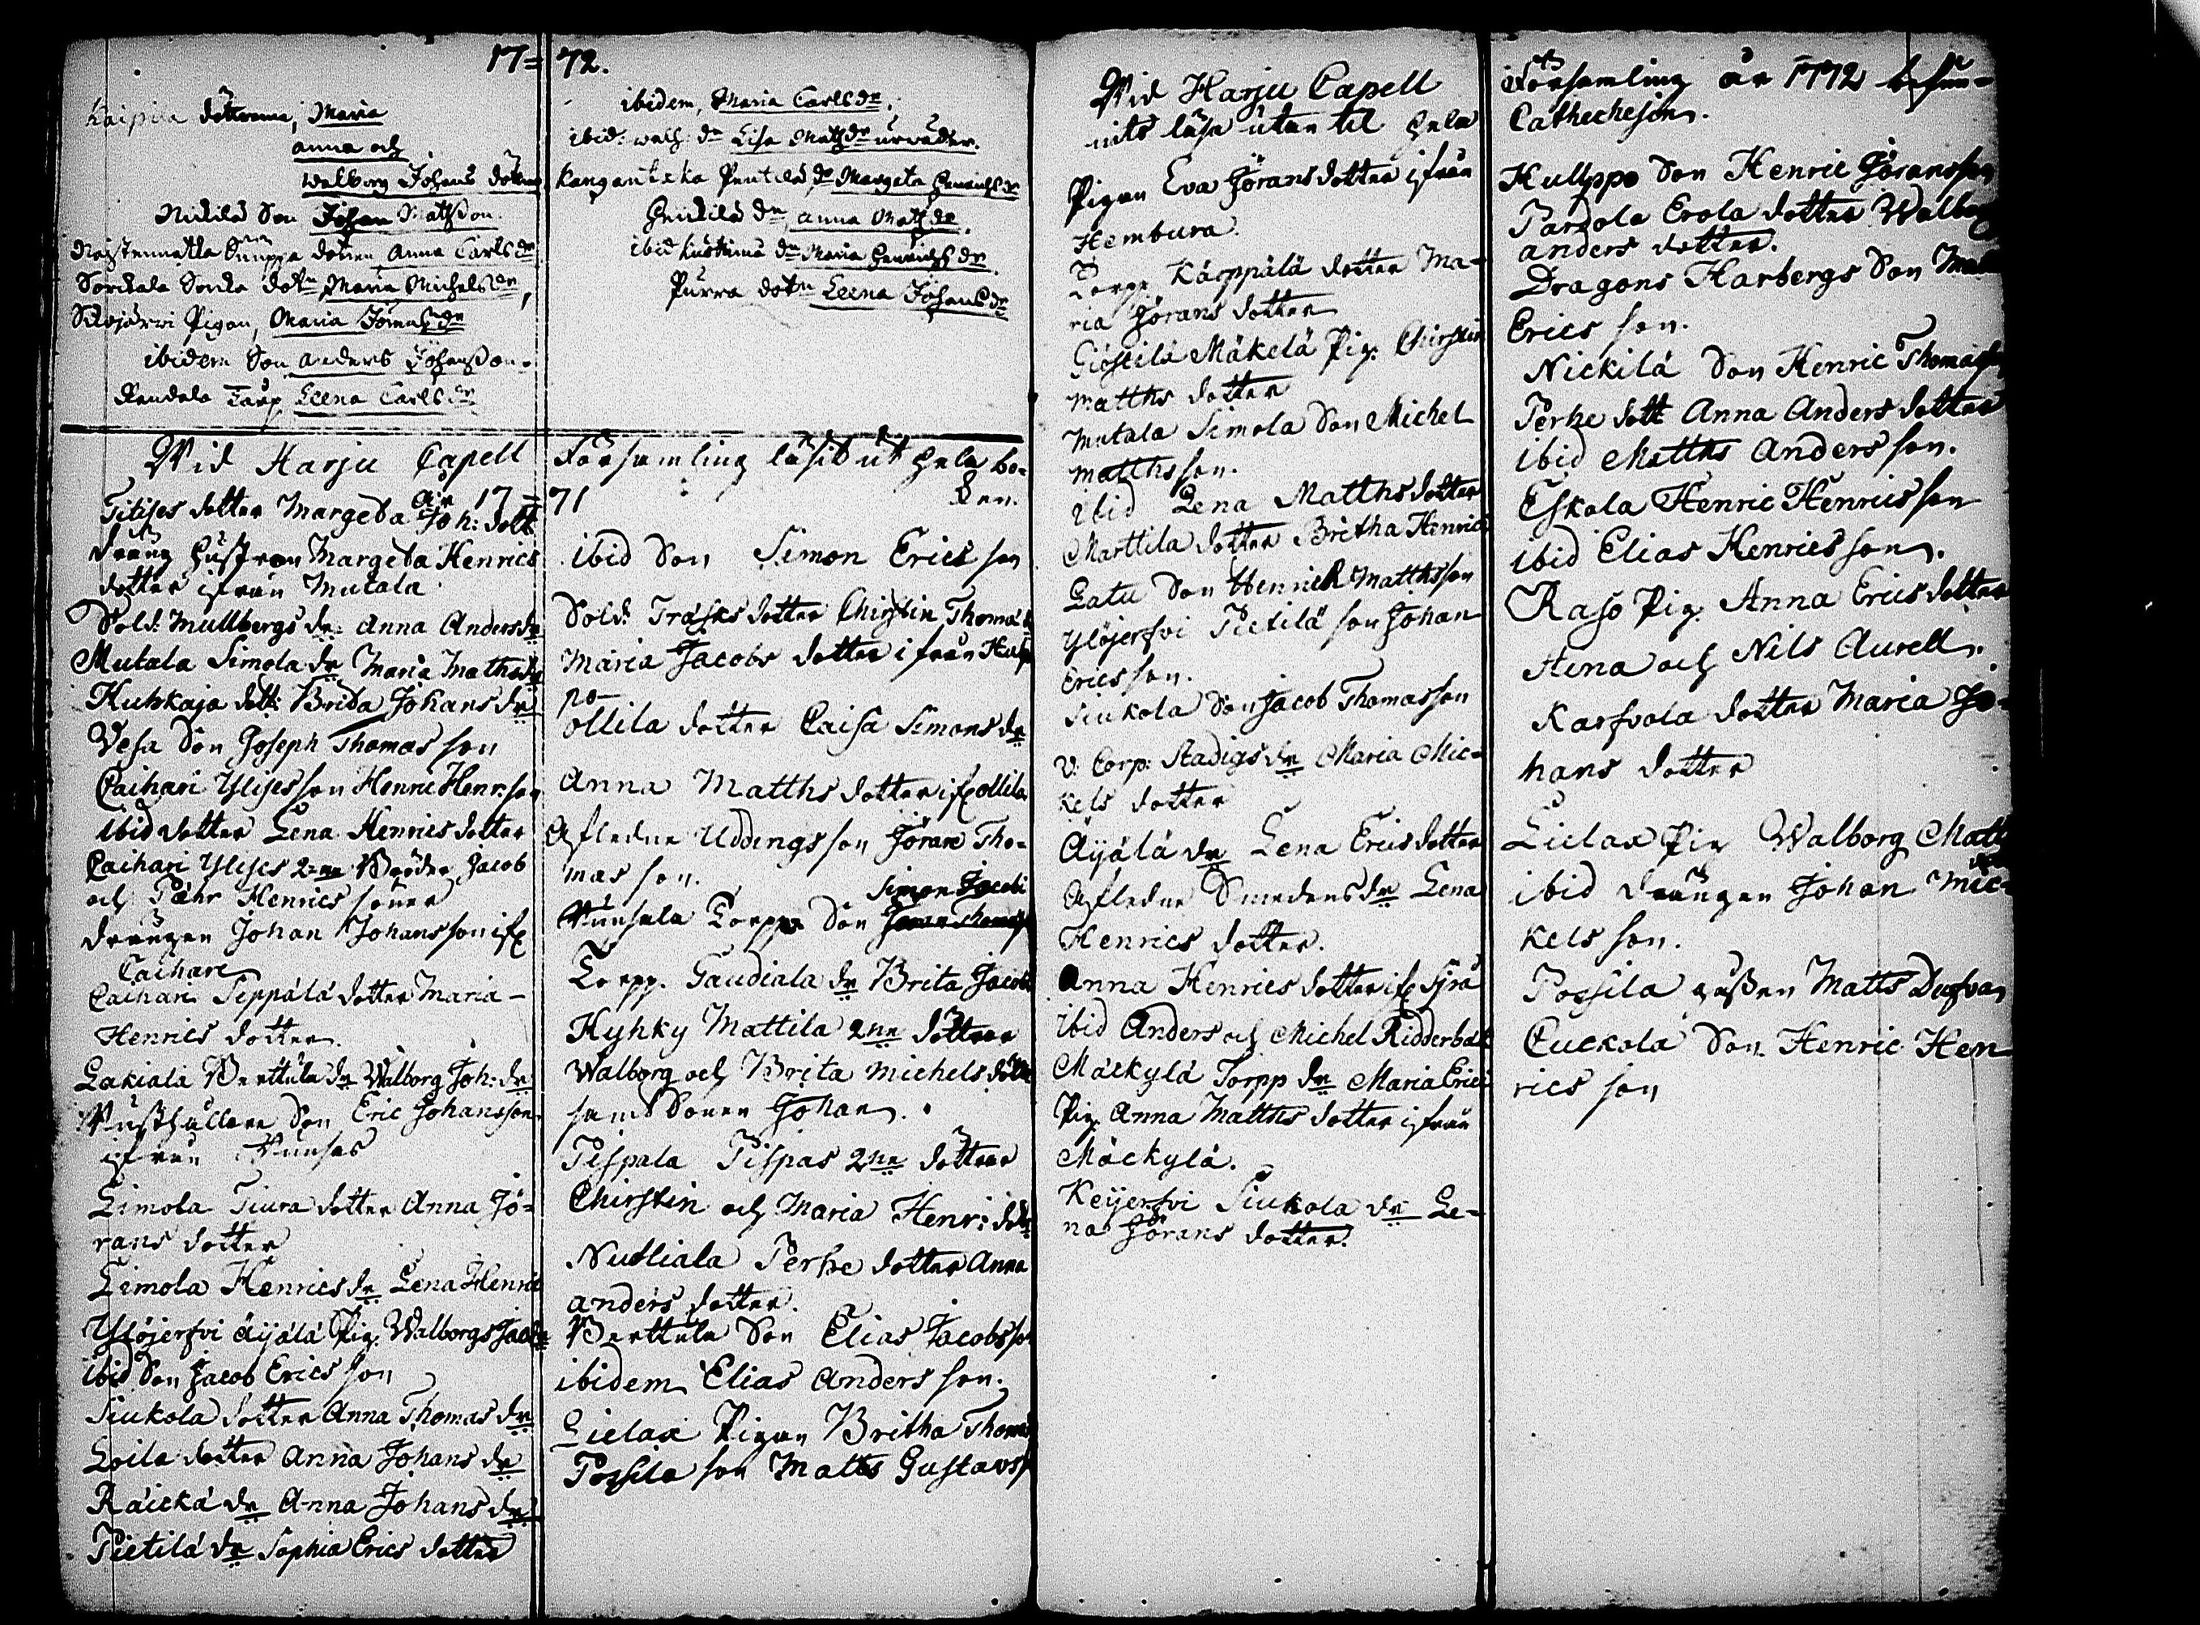 17=72.
Kaipila döttrarna, Maria
anna och
Walborg Johans döttrar
Nickilä Son Johan Matsson.
dottren Anna Carlsdr
dotn Maria Michelsdr,
Pigan, Maria
ibidem Son anders Johansson.
Leena Carlsdr
ibidem, Maria Carlsdr.
ibid: dr Lisa Matsdr
Penttilä dr Margeta Henrichsdr
Heickilä dr anna Matsdr.
ibid dr Maria Henrichsdr
Purra dotn Leena Johansdr
Wid Harju Capell
åhr 17=
Titises dotter Margeta Joh: dott
dräng hustron Margeta Henrics
dotter ifrån Mutala
Sold: Mullbergs dr: Anna Andersdr
Mutala Simola dr Maria Mathsdr
Kuhkaja dott: Brita Johansdr
Vesa Son Joseph Thomas son
Caihari Ylises son Henric Henr: son
ibid dotter Lena Henrics dotter
Caihari Ylises 2=ne Bröder Jacob
och Pähr Henrics söner
drängen Johan Johansson if
Caihari
Caihari Seppälä dotter Maria
Henrics dotter.
Lakiala Berttula dr Walborg Joh: dr
Son Eric Johansson
ifrån
Limola Tiura dotter Anna Jö=
rans dotter
Limola Henrics dr Lena Henric
Ylöjerfvi Äijälä Pig. Walborgs
ibid Son Jacob Erics son
Siukola dotter Anna Thomas dr
Loila dotter Anna Johans dr
Räickä dr Anna Johans dr
Pietilä dr Sophia Erics dotter
Församling läsit ut hela bo=
71 ken.
ibid Son Simon Erics son
Sold: Träsks dotter Chirstin Thomas
Maria Jacobs dotter ifrån Hulp
po
Ollila dotter Caisa Simons dr
Anna Matths dotter if Ollila
Afledne Uddings son Jöran Tho=
mas son.
Simon Jacobi
Torppa Son
Torpp. Gaudiala dr Brita Jacobs
Kyhky Mattila 2ne döttrar
Walborg och Brita Michels döttr
samt Sonen Johan.
Pispala Pispas 2ne döttrar
Chirstin och Maria Henr:
Nutliala Perhe dotter Anna
anders dotter.
Berttula Son Elias Jacobsson
ibidem Elias Anders son.
Lielax Pigan Britha Thomas
Possila son Matts Gustavss
Wid Harju Capell
nits läsa utan til hela
Pigan Eva Jörans dotter ifrån
Hembura.
Torpp Kärppälä dotter Ma=
ria Jörans dotter
Giöstilä Mäkelä Pig. Chirstin
Matths dotter
Mutala Simola Son Michel
Matthsson.
ibid Lena Matths dotter
Marttila dotter Britha Henrics
Latu Son Henrick Matthsson
Ylöjerfvi Pietilä son Johan
Ericsson.
Siukola Son Jacob Thomasson
V: Corp: Stadigs dr Maria Mic=
kels dotter
Äijälä dr Lena Erics dotter
Afledne Smedens dr Lena
Henrics dotter.
Anna Henrics dotter if Sjrä
ibid Anders och Michel Ridderbäck
Mäckylä Torpp dr Maria Erics
Pig. Anna Matths dotter ifrån
Mäckylä.
Keijerfvi Siukola dr Le=
na Jörans dotter.
Församling år 1772 befun=
Cathechesin.
Hullppo Son Henric Jöransson
Pardola Erola dotter Walborg
anders dotter.
Dragons Harbergs Son
Erics son.
Nickilä Son Henric Thomasson
Perhe dott Anna Anders dotter
ibid Matths Anders son.
Eskola Henric Henrics son
ibid Elias Henrics son.
Raso Pig. Anna Erics dotter
Aina och Nils Aurell.
Karfvola dotter Maria Jo=
hans dotter
Lielax Pig Walborg Matts
ibid drängen Johan Mic=
kels son.
Possila Matts Dufva
Cuckola Son Henric Hen
rics son